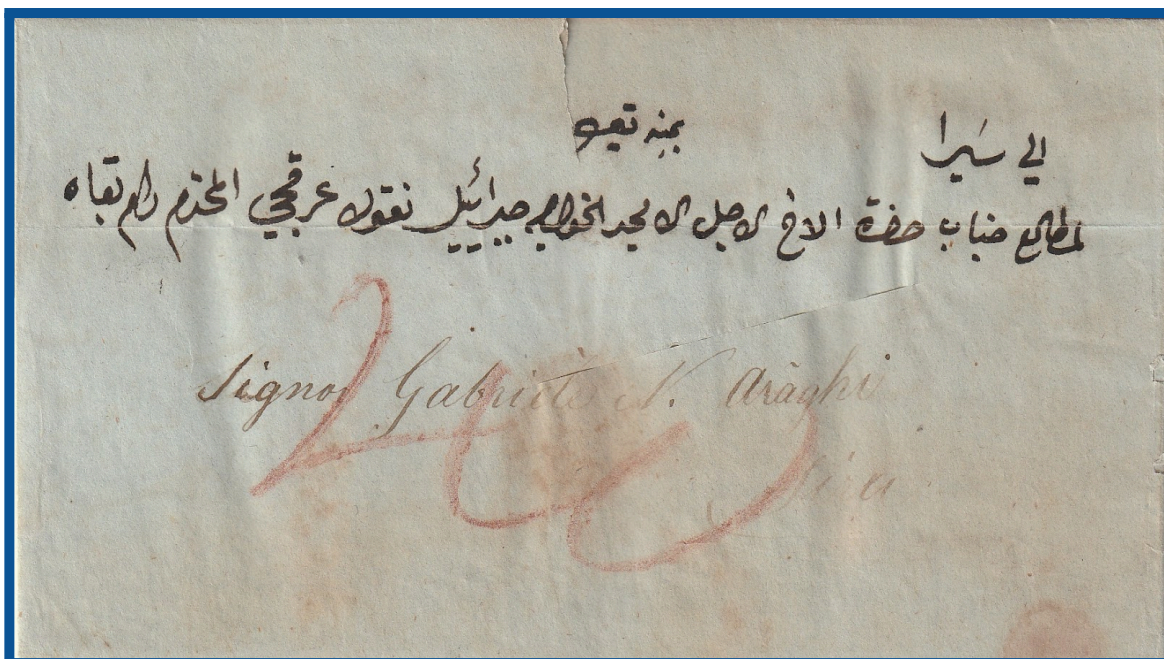 الي سَيرا بمنه تعالى
لمطالع جناب حضرة الاخ الاجل الامجد الخواجه جبرائيل نقولا عرقجي المحترم دام بقاه
Signor Gabriele N. Araghi
Sira